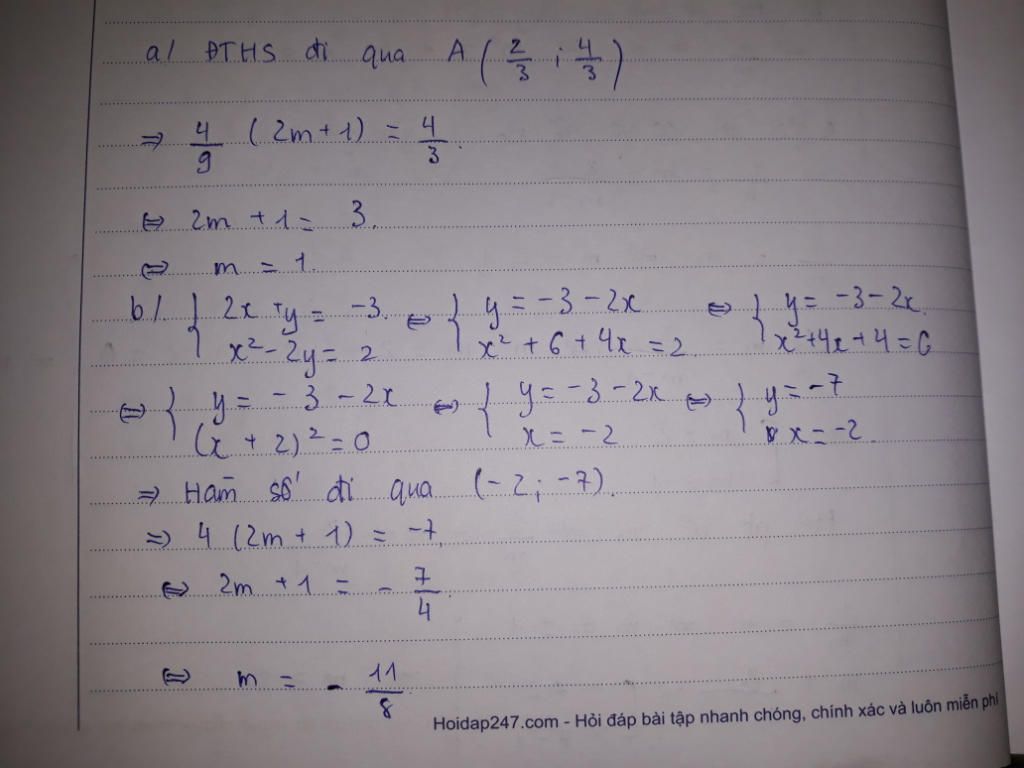 a/ ĐTHS đi qua A (2/3 ; 4/3)
⇒ 4/9 (2m+1) = 4/3.
⇔ 2m +1 = 3.
⇔ m = 1.
b/. { 2x +y = -3. ⇔ { y = -3 - 2x ⇔ { y = -3-2x.
x² - 2y = 2 x² + 6 + 4x = 2. x²+4x+4=0
⇔ { y = -3 -2x ⇔ { y = -3 -2x ⇔ { y = -7
(x + 2)² = 0 x = -2 x = -2.
⇒ Hàm số đi qua (-2; -7).
⇒ 4 (2m + 1) = -7.
⇔ 2m +1 = - 7/4.
⇔ m = - 11/8
Hoidap247.com - Hỏi đáp bài tập nhanh chóng, chính xác và luôn miễn phí